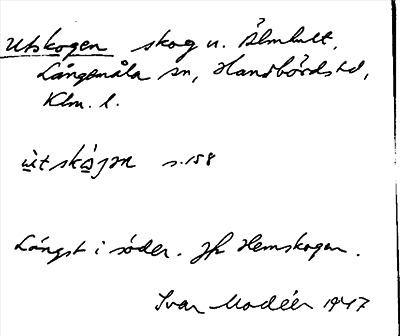 Utskogen skog u. Älmhult,
Långemåla sn, Handbörds hd,
Klm. l.
ùtskógən s. 158
Längst i söder. Jfr Hemskogen.
Ivar Modéer 1947